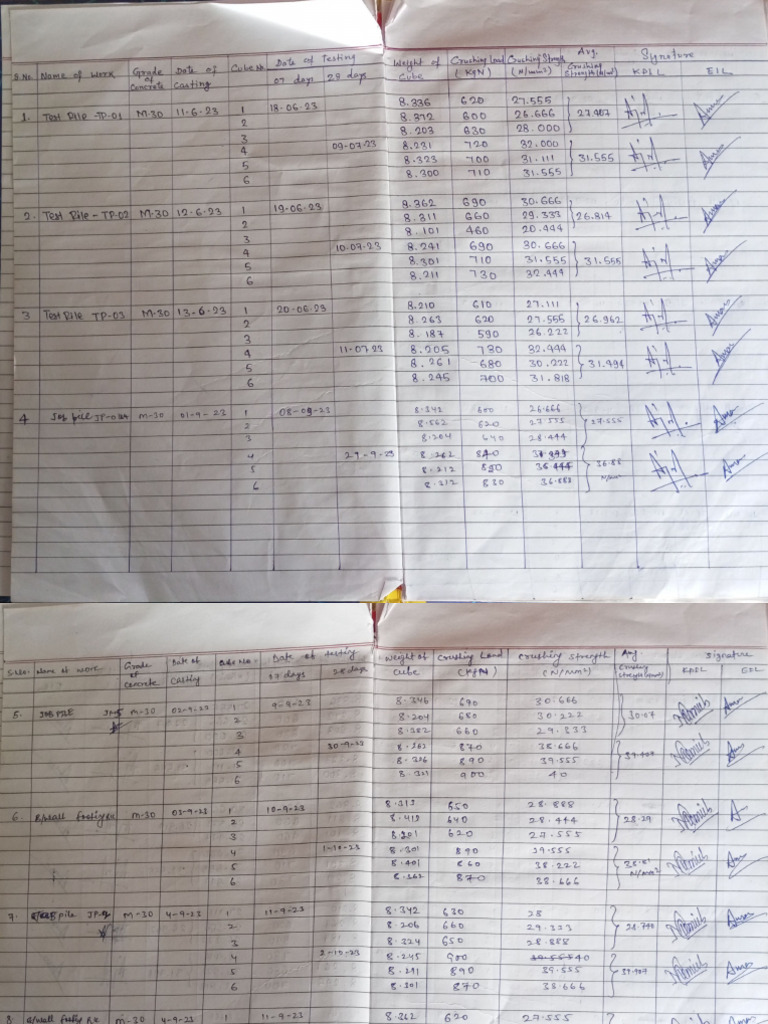 S.No. Name of Work Grade of Concrete Date of Casting Cube No Date of Testing 07 days 28 days Weight of Cube Crushing Load (KgN) Crushing Strength (N/mm²) Avg. Crushing Strength Signature KPIL EIL
1. Test Pile -TP-01 M-30 11-6-23 1 18-06-23 8.336 620 27.555
2 8.372 600 26.666 27.407
3 8.203 630 28.000
4 09-07-23 8.231 720 32.000
5 8.323 700 31.111 31.555
6 8.300 710 31.555
2. Test Pile - TP-02 M-30 12-6-23 1 19-06-23 8.362 690 30.666
2 8.311 660 29.333 26.814
3 8.101 460 20.444
4 10-07-23 8.241 690 30.666
5 8.301 710 31.555 31.555
6 8.211 730 32.444
3 Test Pile TP-03 M-30 13-6-23 1 20-06-23 8.210 610 27.111
2 8.263 620 27.555 26.962
3 8.187 590 26.222
4 11-07-23 8.205 730 32.444
5 8.261 680 30.222 31.494
6 8.245 700 31.818
4 M-30 01-9-23 1 08-09-23 8.342 600 26.666
2 8.562 620 27.555 27.555
3 8.204 640 28.444
4 29-9-23 8.262
5 8.212 36.444 36.88
6 8.212 830 36.888 N/mm²
S.No. Name of Work Grade of Concrete Date of Casting Cube No. Date of Testing 07 days 28 days Weight of Cube Crushing Load (KgN) Crushing Strength (N/mm²) Avg. Crushing Strength Signature KPIL EIL
5. JOB PILE M-30 02-9-23 1 9-9-23 8.346 690 30.666
2 8.204 680 30.222 30.07
3 8.282 660 29.333
4 30-9-23 8.262 870 38.666
5 8.326 890 39.555
6 8.321 900 40
6. M-30 03-9-23 1 10-9-23 8.313 650 28.888
2 8.412 640 28.444 28.29
3 8.201 620 27.555
4 1-10-23 8.301 890 39.555
5 8.401 860 38.222 38.81
6 8.362 870 38.666 N/mm²
7. pile M-30 4-9-23 1 11-9-23 8.342 630 28
2 8.206 660 29.323
3 8.324 650 28.888
4 2-10-23 8.245 900 40
5 8.291 890 39.555 39.407
6 8.301 870 38.666
8. M-30 4-9-23 1 11-9-23 8.362 620 27.555